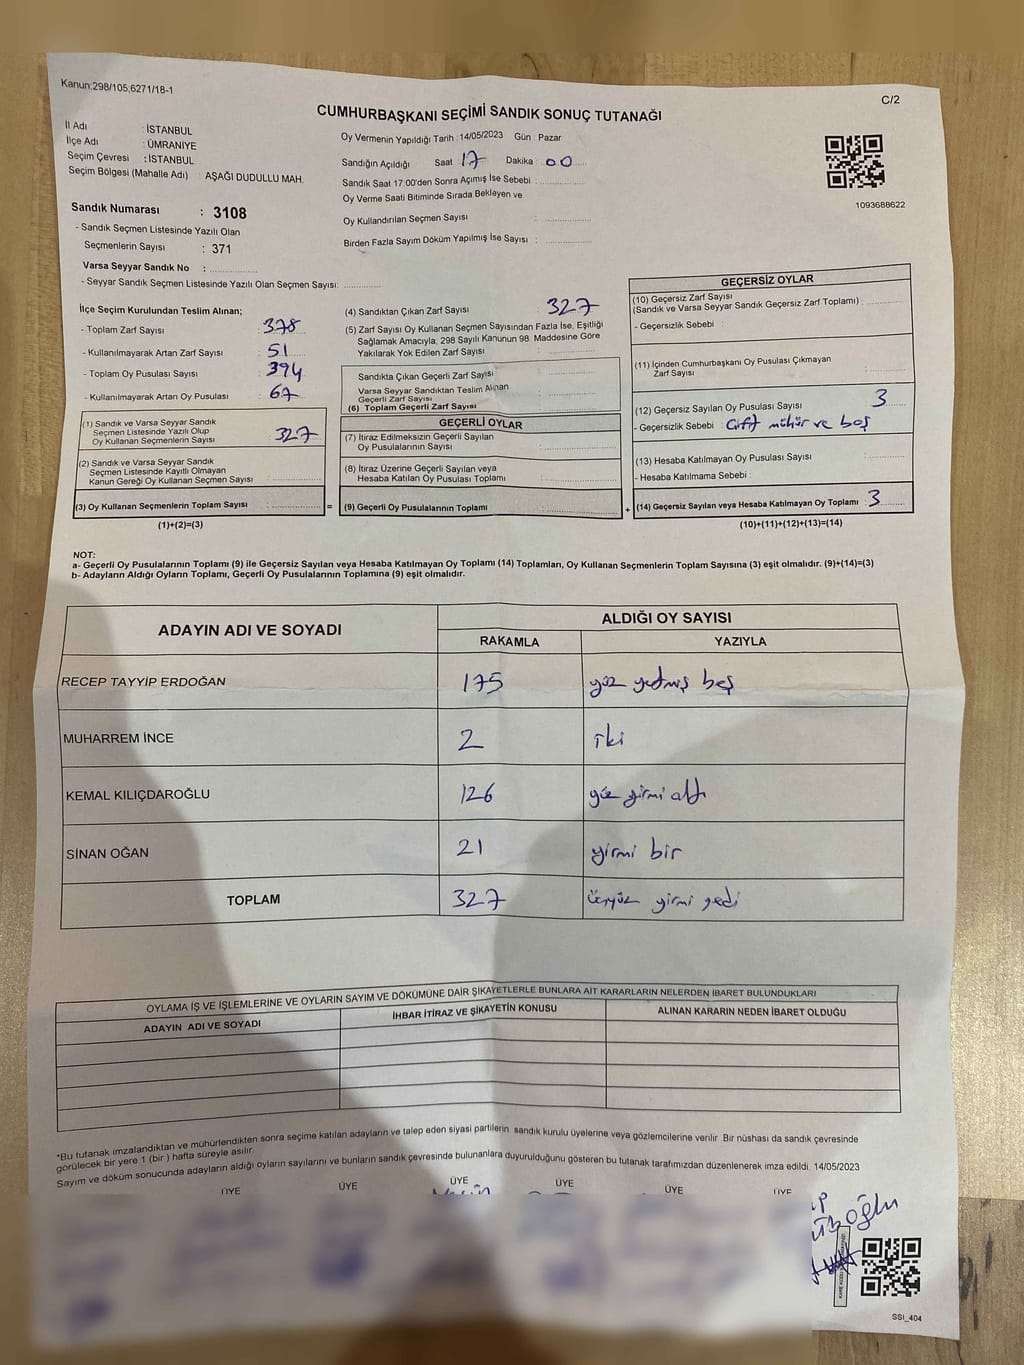 Kanun;298/105,6271/18-1
C/2
CUMHURBAŞKANI SEÇİMİ SANDIK SONUÇ TUTANAĞI
İl Adı : İSTANBUL
İlçe Adı : ÜMRANİYE
Seçim Çevresi : İSTANBUL
Seçim Bölgesi (Mahalle Adı) : AŞAĞI DUDULLU MAH.
Oy Vermenin Yapıldığı Tarih :14/05/2023 Gün : Pazar
Sandığın Açıldığı Saat 17 Dakika 00
Sandık Saat 17:00'den Sonra Açımış İse Sebebi :
Oy Verme Saati Bitiminde Sırada Bekleyen ve
Oy Kullandırılan Seçmen Sayısı :
Birden Fazla Sayım Döküm Yapılmış İse Sayısı :
1093688622
Sandık Numarası : 3108
- Sandık Seçmen Listesinde Yazılı Olan
Seçmenlerin Sayısı : 371
Varsa Seyyar Sandık No :
- Seyyar Sandık Seçmen Listesinde Yazılı Olan Seçmen Sayısı:
İlçe Seçim Kurulundan Teslim Alınan;
- Toplam Zarf Sayısı : 378
- Kullanılmayarak Artan Zarf Sayısı : 51
- Toplam Oy Pusulası Sayısı : 394
- Kullanılmayarak Artan Oy Pusulası : 67
(1) Sandık ve Varsa Seyyar Sandık
Seçmen Listesinde Yazılı Olup
Oy Kullanan Seçmenlerin Sayısı : 327
(2) Sandık ve Varsa Seyyar Sandık
Seçmen Listesinde Kayıtlı Olmayan
Kanun Gereği Oy Kullanan Seçmen Sayısı :
(3) Oy Kullanan Seçmenlerin Toplam Sayısı : =
(1)+(2)=(3)
(4) Sandıktan Çıkan Zarf Sayısı : 327
(5) Zarf Sayısı Oy Kullanan Seçmen Sayısından Fazla İse, Eşitliği
Sağlamak Amacıyla, 298 Sayılı Kanunun 98. Maddesine Göre
Yakılarak Yok Edilen Zarf Sayısı :
Sandıkta Çıkan Geçerli Zarf Sayısı :
Varsa Seyyar Sandıktan Teslim Alınan
Geçerli Zarf Sayısı :
(6) Toplam Geçerli Zarf Sayısı :
GEÇERLİ OYLAR
(7) İtiraz Edilmeksizin Geçerli Sayılan
Oy Pusulalarının Sayısı :
(8) İtiraz Üzerine Geçerli Sayılan veya
Hesaba Katılan Oy Pusulası Toplamı :
(9) Geçerli Oy Pusulalarının Toplamı : +
GEÇERSİZ OYLAR
(10) Geçersiz Zarf Sayısı
(Sandık ve Varsa Seyyar Sandık Geçersiz Zarf Toplamı) :
- Geçersizlik Sebebi :
(11) İçinden Cumhurbaşkanı Oy Pusulası Çıkmayan
Zarf Sayısı :
(12) Geçersiz Sayılan Oy Pusulası Sayısı : 3
- Geçersizlik Sebebi : Çift mühür ve boş
(13) Hesaba Katılmayan Oy Pusulası Sayısı :
- Hesaba Katılmama Sebebi :
(14) Geçersiz Sayılan veya Hesaba Katılmayan Oy Toplamı : 3
(10)+(11)+(12)+(13)=(14)
NOT:
a- Geçerli Oy Pusulalarının Toplamı (9) ile Geçersiz Sayılan veya Hesaba Katılmayan Oy Toplamı (14) Toplamları, Oy Kullanan Seçmenlerin Toplam Sayısına (3) eşit olmalıdır. (9)+(14)=(3)
b- Adayların Aldığı Oyların Toplamı, Geçerli Oy Pusulalarının Toplamına (9) eşit olmalıdır.
ADAYIN ADI VE SOYADI ALDIĞI OY SAYISI
RAKAMLA YAZIYLA
RECEP TAYYİP ERDOĞAN 175 yüz yetmiş beş
MUHARREM İNCE 2 iki
KEMAL KILIÇDAROĞLU 126 yüz yirmi altı
SİNAN OĞAN 21 yirmi bir
TOPLAM 327 üçyüz yirmi yedi
OYLAMA İŞ VE İŞLEMLERİNE VE OYLARIN SAYIM VE DÖKÜMÜNE DAİR ŞİKAYETLERLE BUNLARA AİT KARARLARIN NELERDEN İBARET BULUNDUKLARI
ADAYIN ADI VE SOYADI İHBAR İTİRAZ VE ŞİKAYETİN KONUSU ALINAN KARARIN NEDEN İBARET OLDUĞU
*Bu tutanak imzalandıktan ve mühürlendikten sonra seçime katılan adayların ve talep eden siyasi partilerin sandık kurulu üyelerine veya gözlemcilerine verilir Bir nüshası da sandık çevresinde
görülecek bir yere 1 (bir ) hafta süreyle asılır.
Sayım ve döküm sonucunda adayların aldığı oyların sayılarını ve bunların sandık çevresinde bulunanlara duyurulduğunu gösteren bu tutanak tarafımızdan düzenlenerek imza edildi. 14/05/2023
ÜYE ÜYE ÜYE ÜYE ÜYE ÜYE
SSI_404